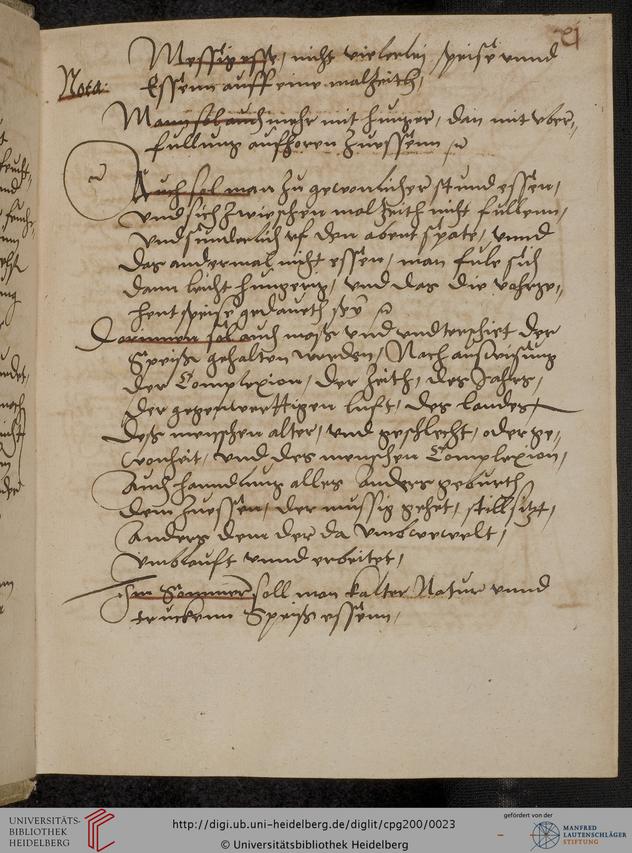 Messig esse, nicht vielerlei speise vnnd
Nota. Essenn auff eine malzeith,
Mann sol auch mehr mit hunger, dan mit vber,,
fullung aufhoren zuessenn
Auch sol man zu gewonlicher stund essen,
vnd sich zwieschen malzeith nicht fullenn,
vnd sunderlich vf den abent spate, vnnd
das andermal nicht essen, man fule sich
dann leicht hungerig, vnd das die vohrge,,
hent speise gedaueth sey
Darinnen sol auch moss vnd vndterschiet der
Speiss gehalten werden, Nach ausweisung
der Complexion, der zeith, des Jahres,
der gegenwerttigen luft, des landes
Dess menschen alter, vnd geschlecht, oder ge,,
wonheit, vnd des menschen Complexion,
Auch hanndlung alles Anders geburth
dem zuessen, der mussig gehet, still sitzt,
Anders dem der da vmbwewelt,
vmblauft vnnd erbeitet,
Im Sommer soll man kalter Natur vnnd
truckenn Speiss essenn,
UNIVERSITÄTS-
BIBLIOTHEK
HEIDELBERG
http://digi.ub.uni-heidelberg.de/diglit/cpg200/0023
© Universitätsbibliothek Heidelberg
gefördert von der
MANFRED
LAUTENSCHLÄGER
STIFTUNG